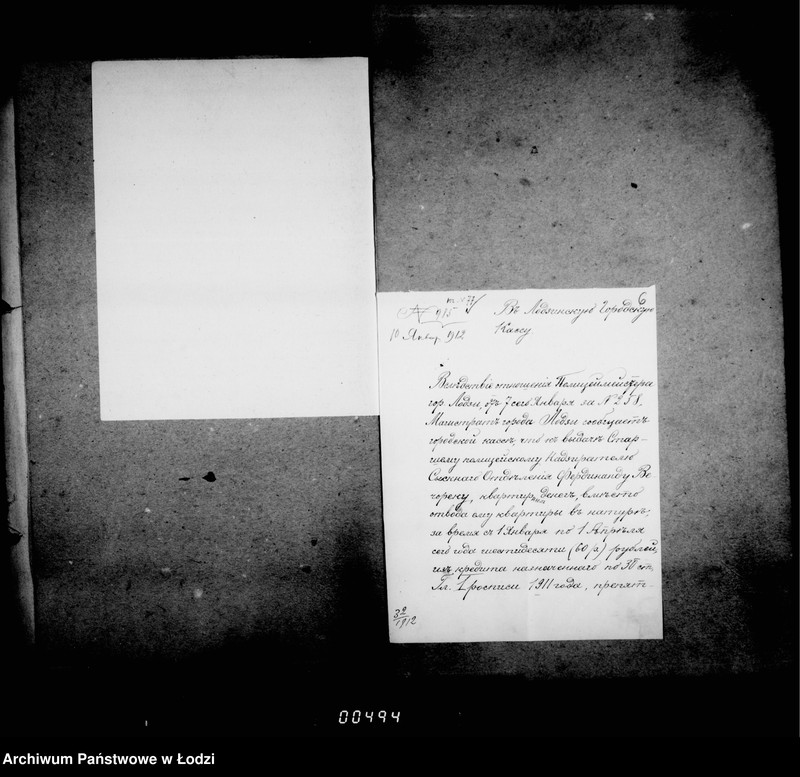 6
№ 915
10 Январ. 1912
Въ Лодзинскую Городскую
Кассу
Вслѣдствіе отношенія Полицеймейстера
гор. Лодзи, отъ 7 сего Января за № 251,
Магистратъ города Лодзи сообщаетъ
городской кассѣ, что къ выдачѣ Стар-
шему полицейскому Надзирателю
Сыскнаго Отдѣленія Фердинанду Ве
чореку, квартирн. денегъ, вмѣсто
отвода ему квартиры въ натурѣ,
за время съ 1 Января по 1 Апрѣля
сего года шестидесяти (60 р.) рублей,
изъ кредита назначеннаго по 30 ст.
Гл. I росписи 1911 года, препят-
32
1912
00494
Archiwum Państwowe w Łodzi